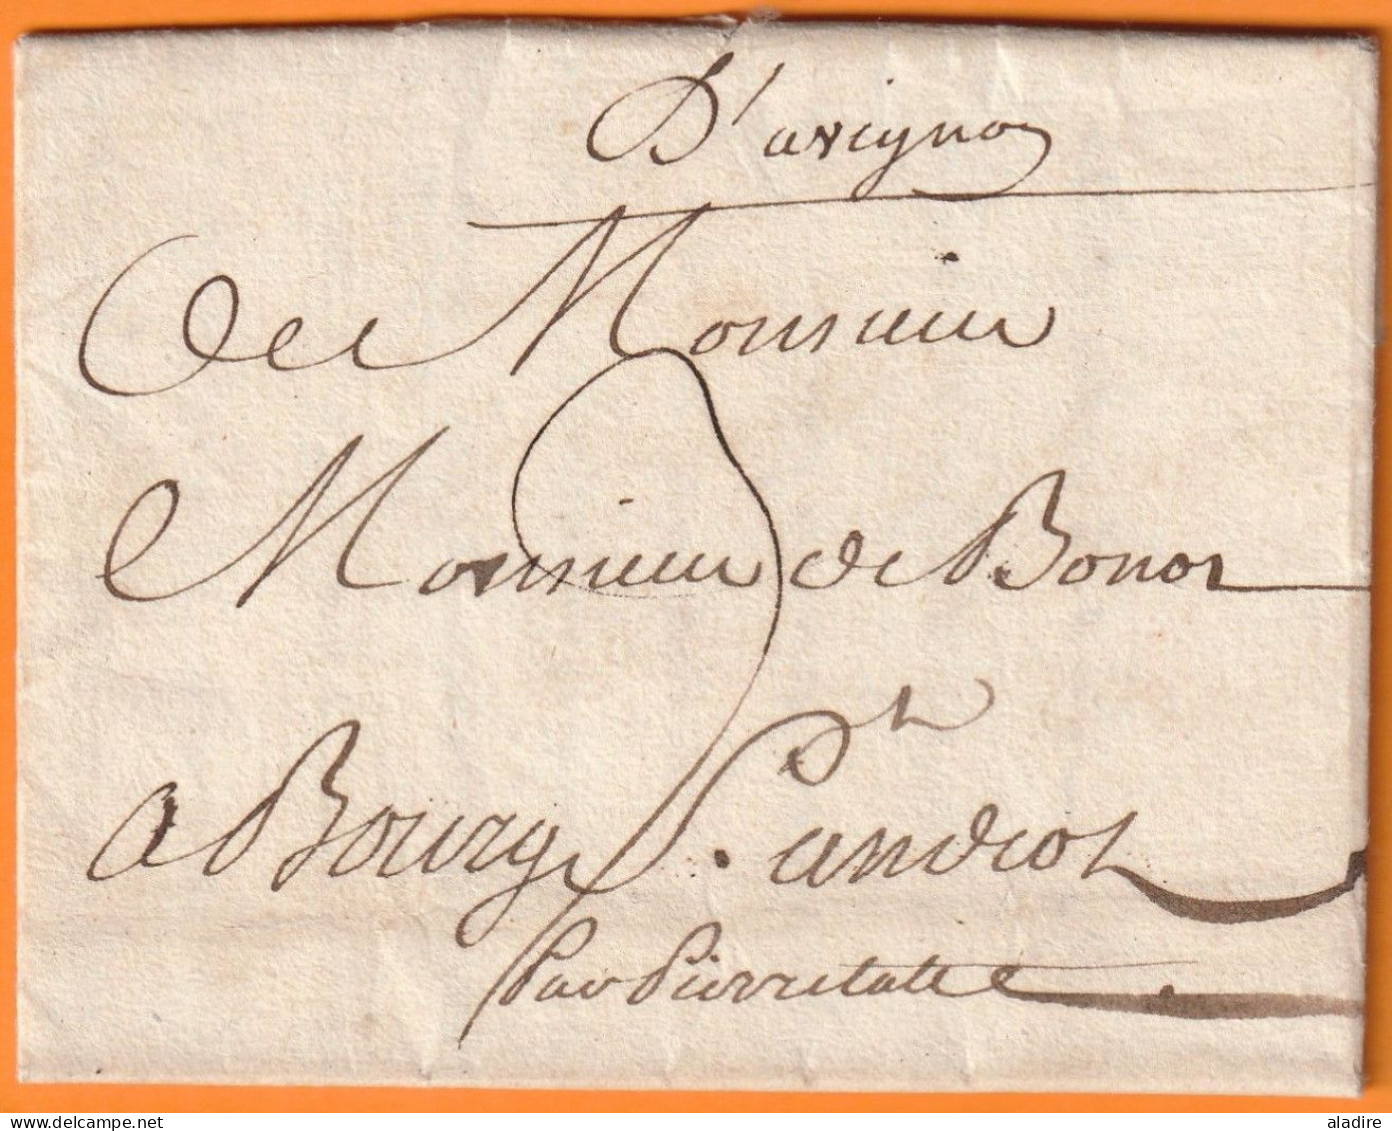 D'avignon
A Monsieur
Monsieur de Bonot
a Bourg St. andeol
Par Pierrelatte
www.delcampe.net
aladire